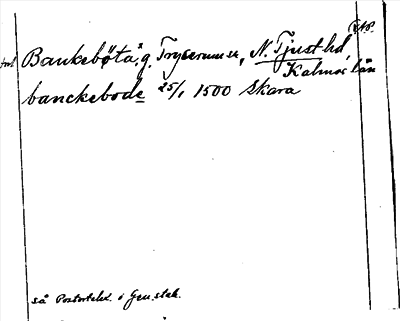 Bankebøta, g. Tryserum sn, N. Tjust hd,
Kalmar län
banckebode 25/1 1500 Skara
så Postortslex. i Gen.stab.